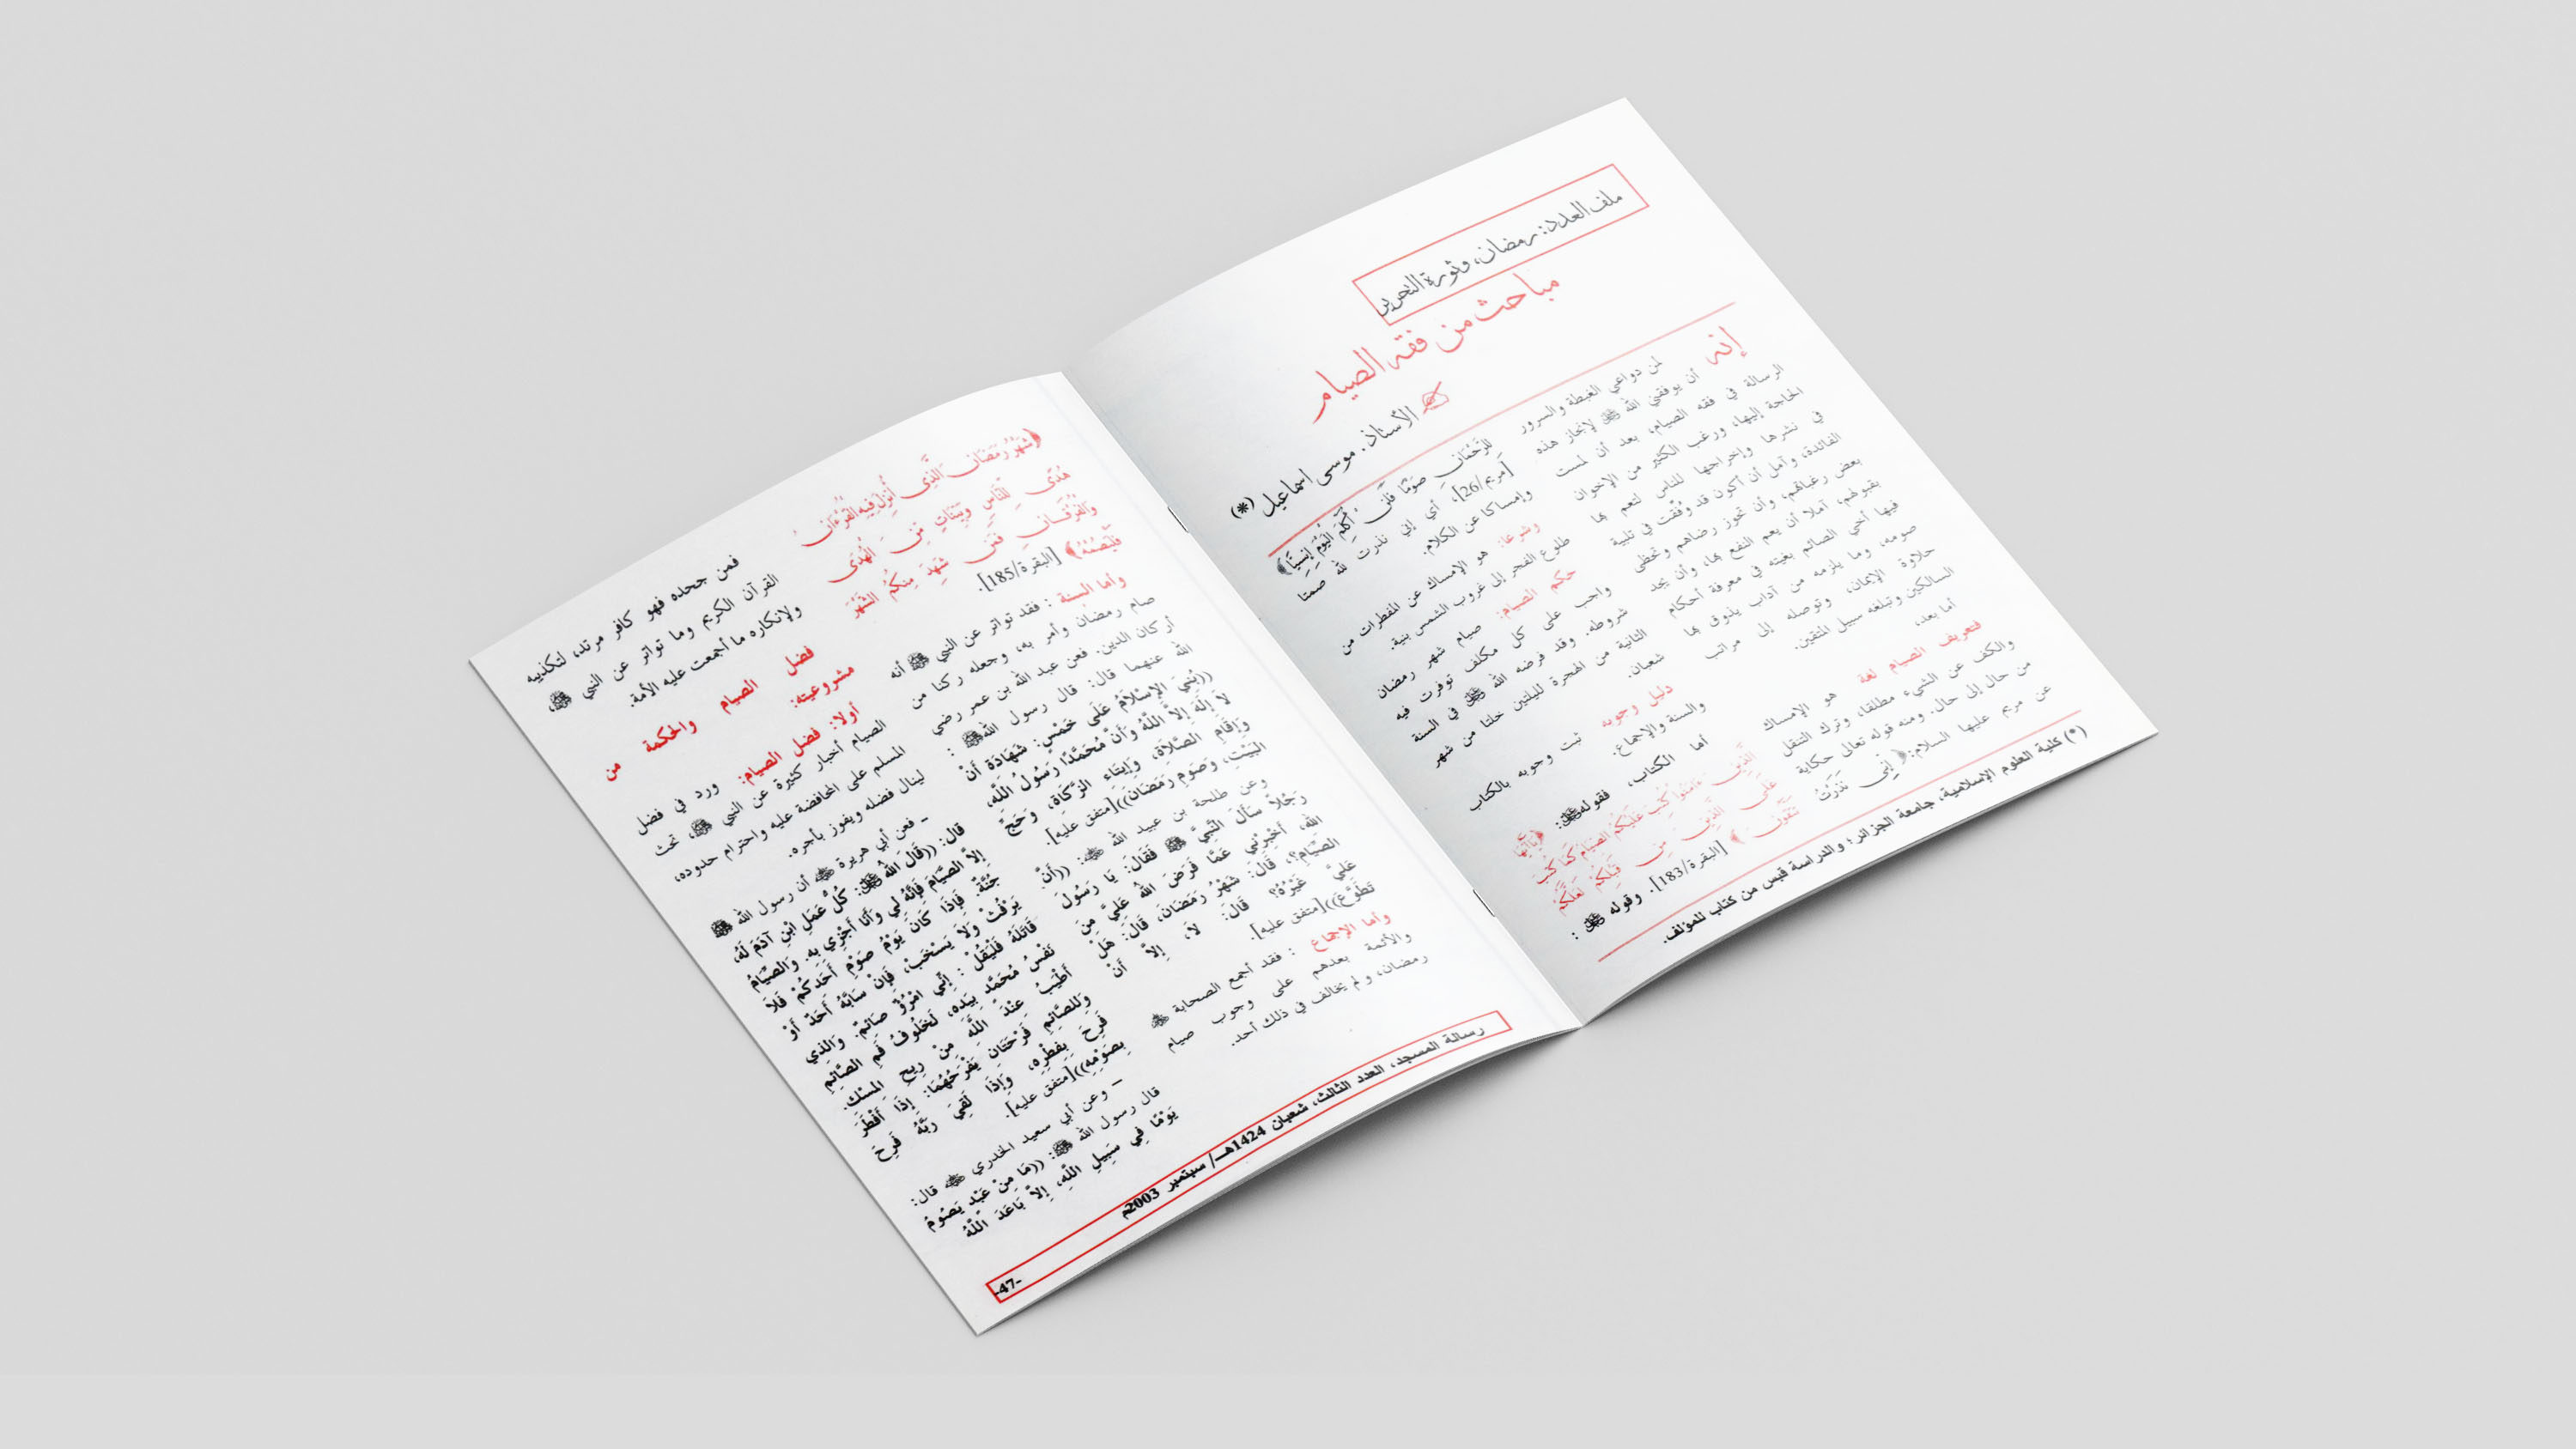 ملف العدد: رمضان، وثورة التحرير
مباحث من فقه الصيام
الأستاذ. موسى اسماعيل (*)
إنه لمن دواعي الغبطة والسرور
أن يوفقني الله ﷻ لإنجاز هذه
الرسالة في فقه الصيام، بعد أن لمست
الحاجة إليها، ورغب الكثير من الإخوان
في نشرها وإخراجها للناس لتعم بها
الفائدة، وآمل أن أكون قد وفّقت في تلبية
بعض رغباتهم، وأن تحوز رضاهم وتحظى
بقبولهم، آملا أن يعم النفع بها، وأن يجد
فيها أخي الصائم بغيته في معرفة أحكام
صومه، وما يلزمه من آداب يذوق بها
حلاوة الإيمان، وتوصله إلى مراتب
السالكين وتبلغه سبيل المتقين.
أما بعد،
فتعريف الصيام لغة هو الإمساك
والكف عن الشيء مطلقا، وترك التنقل
من حال إلى حال. ومنه قوله تعالى حكاية
عن مريم عليها السلام: ﴿إِنِّي نَذَرْتُ
لِلرَّحْمَانِ صَوْمًا فَلَنْ أُكَلِّمَ الْيَوْمَ إِنسِيًّا﴾
[مريم/26]، أي إني نذرت لله صمتا
وإمساكا عن الكلام.
وشرعا: هو الإمساك عن المفطرات من
طلوع الفجر إلى غروب الشمس بنية.
حكم الصيام: صيام شهر رمضان
واجب على كل مكلف توفرت فيه
شروطه. وقد فرضه الله ﷻ في السنة
الثانية من الهجرة لليلتين خلتا من شهر
شعبان.
دليل وجوبه ثبت وجوبه بالكتاب
والسنة والإجماع.
أما الكتاب، فقوله ﷻ: ﴿يَا أَيُّهَا
الَّذِينَ ءَامَنُوا كُتِبَ عَلَيْكُمُ الصِّيَامُ كَمَا كُتِبَ
عَلَى الَّذِينَ مِن قَبْلِكُمْ لَعَلَّكُمْ
تَتَّقُونَ﴾ [البقرة/183]. وقوله ﷻ:
(*) كلية العلوم الإسلامية، جامعة الجزائر؛ والدراسة قبس من كتاب للمؤلف.
﴿شَهْرُ رَمَضَانَ الَّذِي أُنزِلَ فِيهِ الْقُرْءَانُ
هُدًى لِّلنَّاسِ وَبَيِّنَاتٍ مِّنَ الْهُدَى
وَالْفُرْقَانِ فَمَن شَهِدَ مِنكُمُ الشَّهْرَ
فَلْيَصُمْهُ﴾ [البقرة/185].
وأما السنة: فقد تواتر عن النبي ﷺ أنه
صام رمضان وأمر به، وجعله ركنا من
أركان الدين. فعن عبد الله بن عمر رضي
الله عنهما قال: قال رسول الله ﷺ:
((بُنِيَ الإِسْلاَمُ عَلَى خَمْسٍ: شَهَادَةِ أَنْ
لاَ إِلَهَ إِلاَّ اللَّهُ وَأَنَّ مُحَمَّدًا رَسُولُ اللَّهِ،
وَإِقَامِ الصَّلاَةِ، وَإِيتَاءِ الزَّكَاةِ، وَحَجِّ
الْبَيْتِ، وَصَوْمِ رَمَضَانَ))[متفق عليه].
وعن طلحة بن عبيد الله ﷺ: ((أَنَّ
رَجُلاً سَأَلَ النَّبِيَّ ﷺ فَقَالَ: يَا رَسُولَ
اللهِ، أَخْبِرْنِي عَمَّا فَرَضَ اللهُ عَلَيَّ مِنَ
الصِّيَامِ؟، قَالَ: شَهْرُ رَمَضَانَ، قَالَ: هَلْ
عَلَيَّ غَيْرُهُ؟ قَالَ: لاَ، إِلاَّ أَنْ
تَطَوَّعَ))[متفق عليه].
وأما الإجماع: فقد أجمع الصحابة
والأئمة بعدهم على وجوب صيام
رمضان، ولم يخالف في ذلك أحد.
فمن جحده فهو كافر مرتد، لتكذيبه
القرآن الكريم وما تواتر عن النبي ﷺ،
ولإنكاره ما أجمعت عليه الأمة.
فضل الصيام والحكمة من
مشروعيته:
أولا: فضل الصيام: ورد في فضل
الصيام أخبار كثيرة عن النبي ﷺ، تحث
المسلم على المحافضة عليه واحترام حدوده،
لينال فضله ويفوز بأجره.
– فعن أبي هريرة أن رسول الله ﷺ
قال: ((قَالَ اللهُ ﷻ: كُلُّ عَمَلِ ابْنِ آدَمَ لَهُ،
إِلاَّ الصِّيَامَ فَإِنَّهُ لِي وَأَنَا أَجْزِي بِهِ. وَالصِّيَامُ
جُنَّةٌ، فَإِذَا كَانَ يَوْمُ صَوْمِ أَحَدِكُمْ فَلاَ
يَرْفُثْ وَلاَ يَسْخَبْ، فَإِنْ سَابَّهُ أَحَدٌ أَوْ
قَاتَلَهُ فَلْيَقُلْ: إِنِّي امْرُؤٌ صَائِمٌ. وَالَّذِي
نَفْسُ مُحَمَّدٍ بِيَدِهِ، لَخَلُوفُ فَمِ الصَّائِمِ
أَطْيَبُ عِنْدَ اللَّهِ مِنْ رِيحِ الْمِسْكِ.
وَلِلصَّائِمِ فَرْحَتَانِ يَفْرَحُهُمَا: إِذَا أَفْطَرَ
فَرِحَ بِفِطْرِهِ، وَإِذَا لَقِيَ رَبَّهُ فَرِحَ
بِصَوْمِهِ))[متفق عليه].
– وعن أبي سعيد الخدري قال:
قال رسول الله ﷺ: ((مَا مِنْ عَبْدٍ يَصُومُ
يَوْمًا فِي سَبِيلِ اللَّهِ، إِلاَّ بَاعَدَ اللَّهُ
رسالة المسجد، العدد الثالث، شعبان 1424هـ/ سبتمبر 2003م
-47-